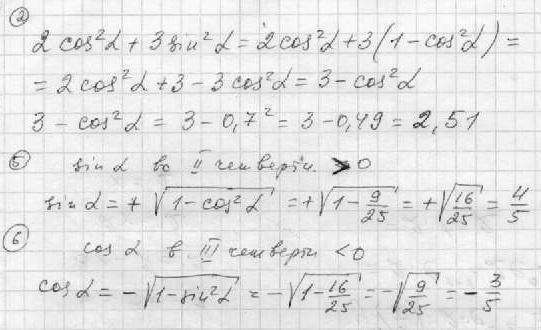 ②
2 cos²α + 3 sin²α = 2cos²α + 3(1 - cos²α) =
= 2cos²α + 3 - 3cos²α = 3 - cos²α
3 - cos²α = 3 - 0,7² = 3 - 0,49 = 2,51
⑤ sin α во II четверти > 0
sin α = + √(1 - cos²α) = + √(1 - 9/25) = + √(16/25) = 4/5
⑥ cos α в III четверти < 0
cos α = - √(1 - sin²α) = - √(1 - 16/25) = - √(9/25) = - 3/5